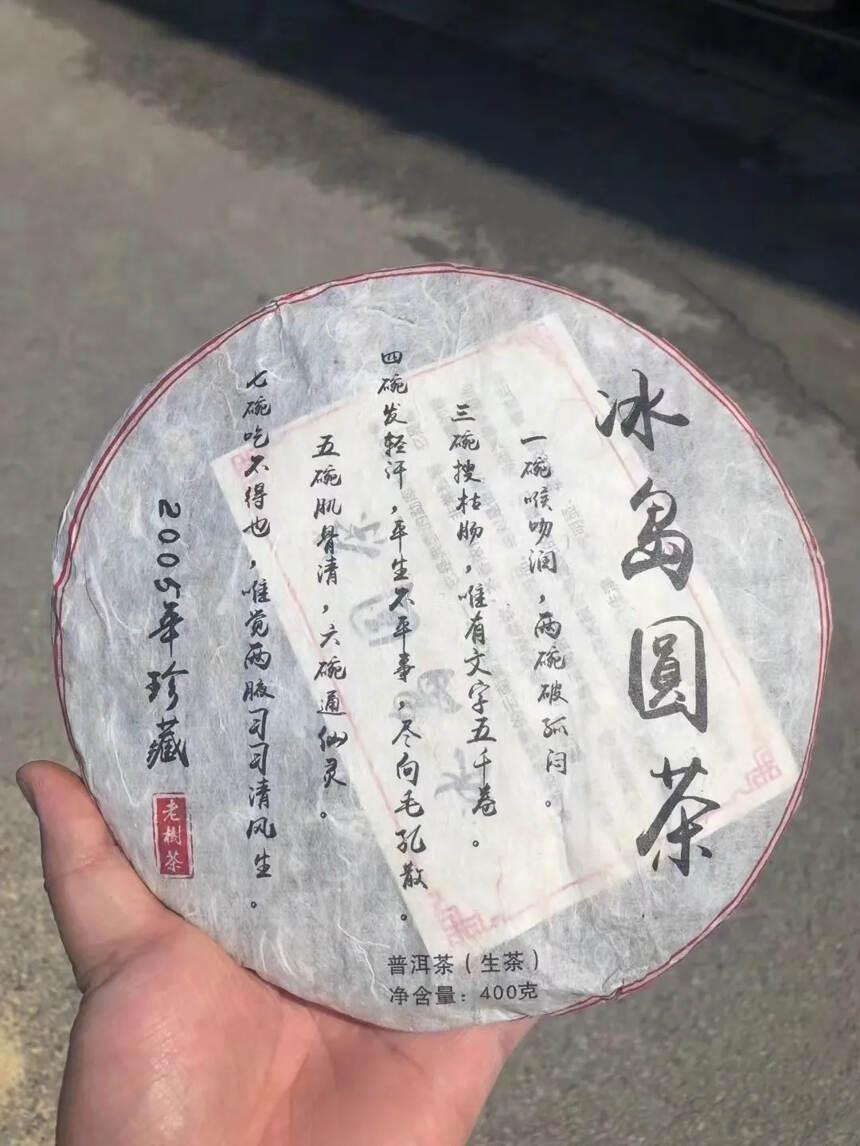 冰岛圆茶
一碗喉吻润，两碗破孤闷。
三碗搜枯肠，唯有文字五千卷。
四碗发轻汗，平生不平事，尽向毛孔散。
五碗肌骨清，六碗通仙灵。
七碗吃不得也，唯觉两腋习习清风生。
2005年珍藏
老樹茶
普洱茶（生茶）
净含量：400克